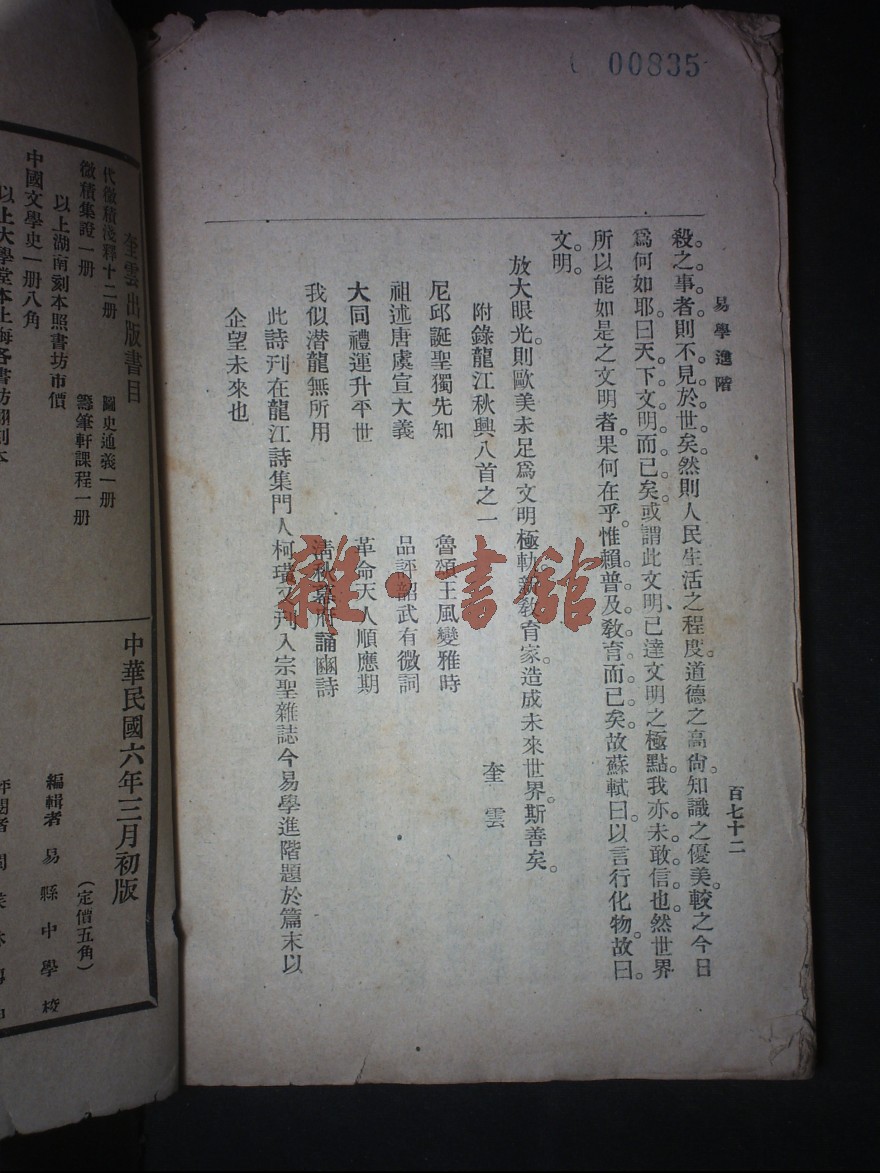 00835
易學進階
百七十二
殺之事者則不見於世矣然則人民生活之程度道德之高尙知識之優美較之今日
爲何如耶曰天下文明而已矣或謂此文明已達文明之極點我亦未敢信也然世界
所以能如是之文明者果何在乎惟賴普及敎育而已矣故蘇軾曰以言行化物故曰
文明
放大眼光則歐美未足爲文明極軌新敎育家造成未來世界斯善矣
附錄龍江秋興八首之一 奎雲
尼邱誕聖獨先知 魯頌王風變雅時
祖述唐虞宣大義 品評韶武有微詞
大同禮運升平世 革命天人順應期
我似潛龍無所用 淸秋幕府誦豳詩
此詩刋在龍江詩集門人柯璜又刋入宗聖雜誌今易學進階題於篇末以
企望未來也
雜·書館
奎雲出版書目
代微積淺釋十二册 圖史通義一册
微積集證一册 籌筆軒課程一册
以上湖南刻本照書坊市價
中國文學史一册八角
以上大學堂本上海各書坊翻刻本
中華民國六年三月初版
(定價五角)
編輯者 易縣中學校